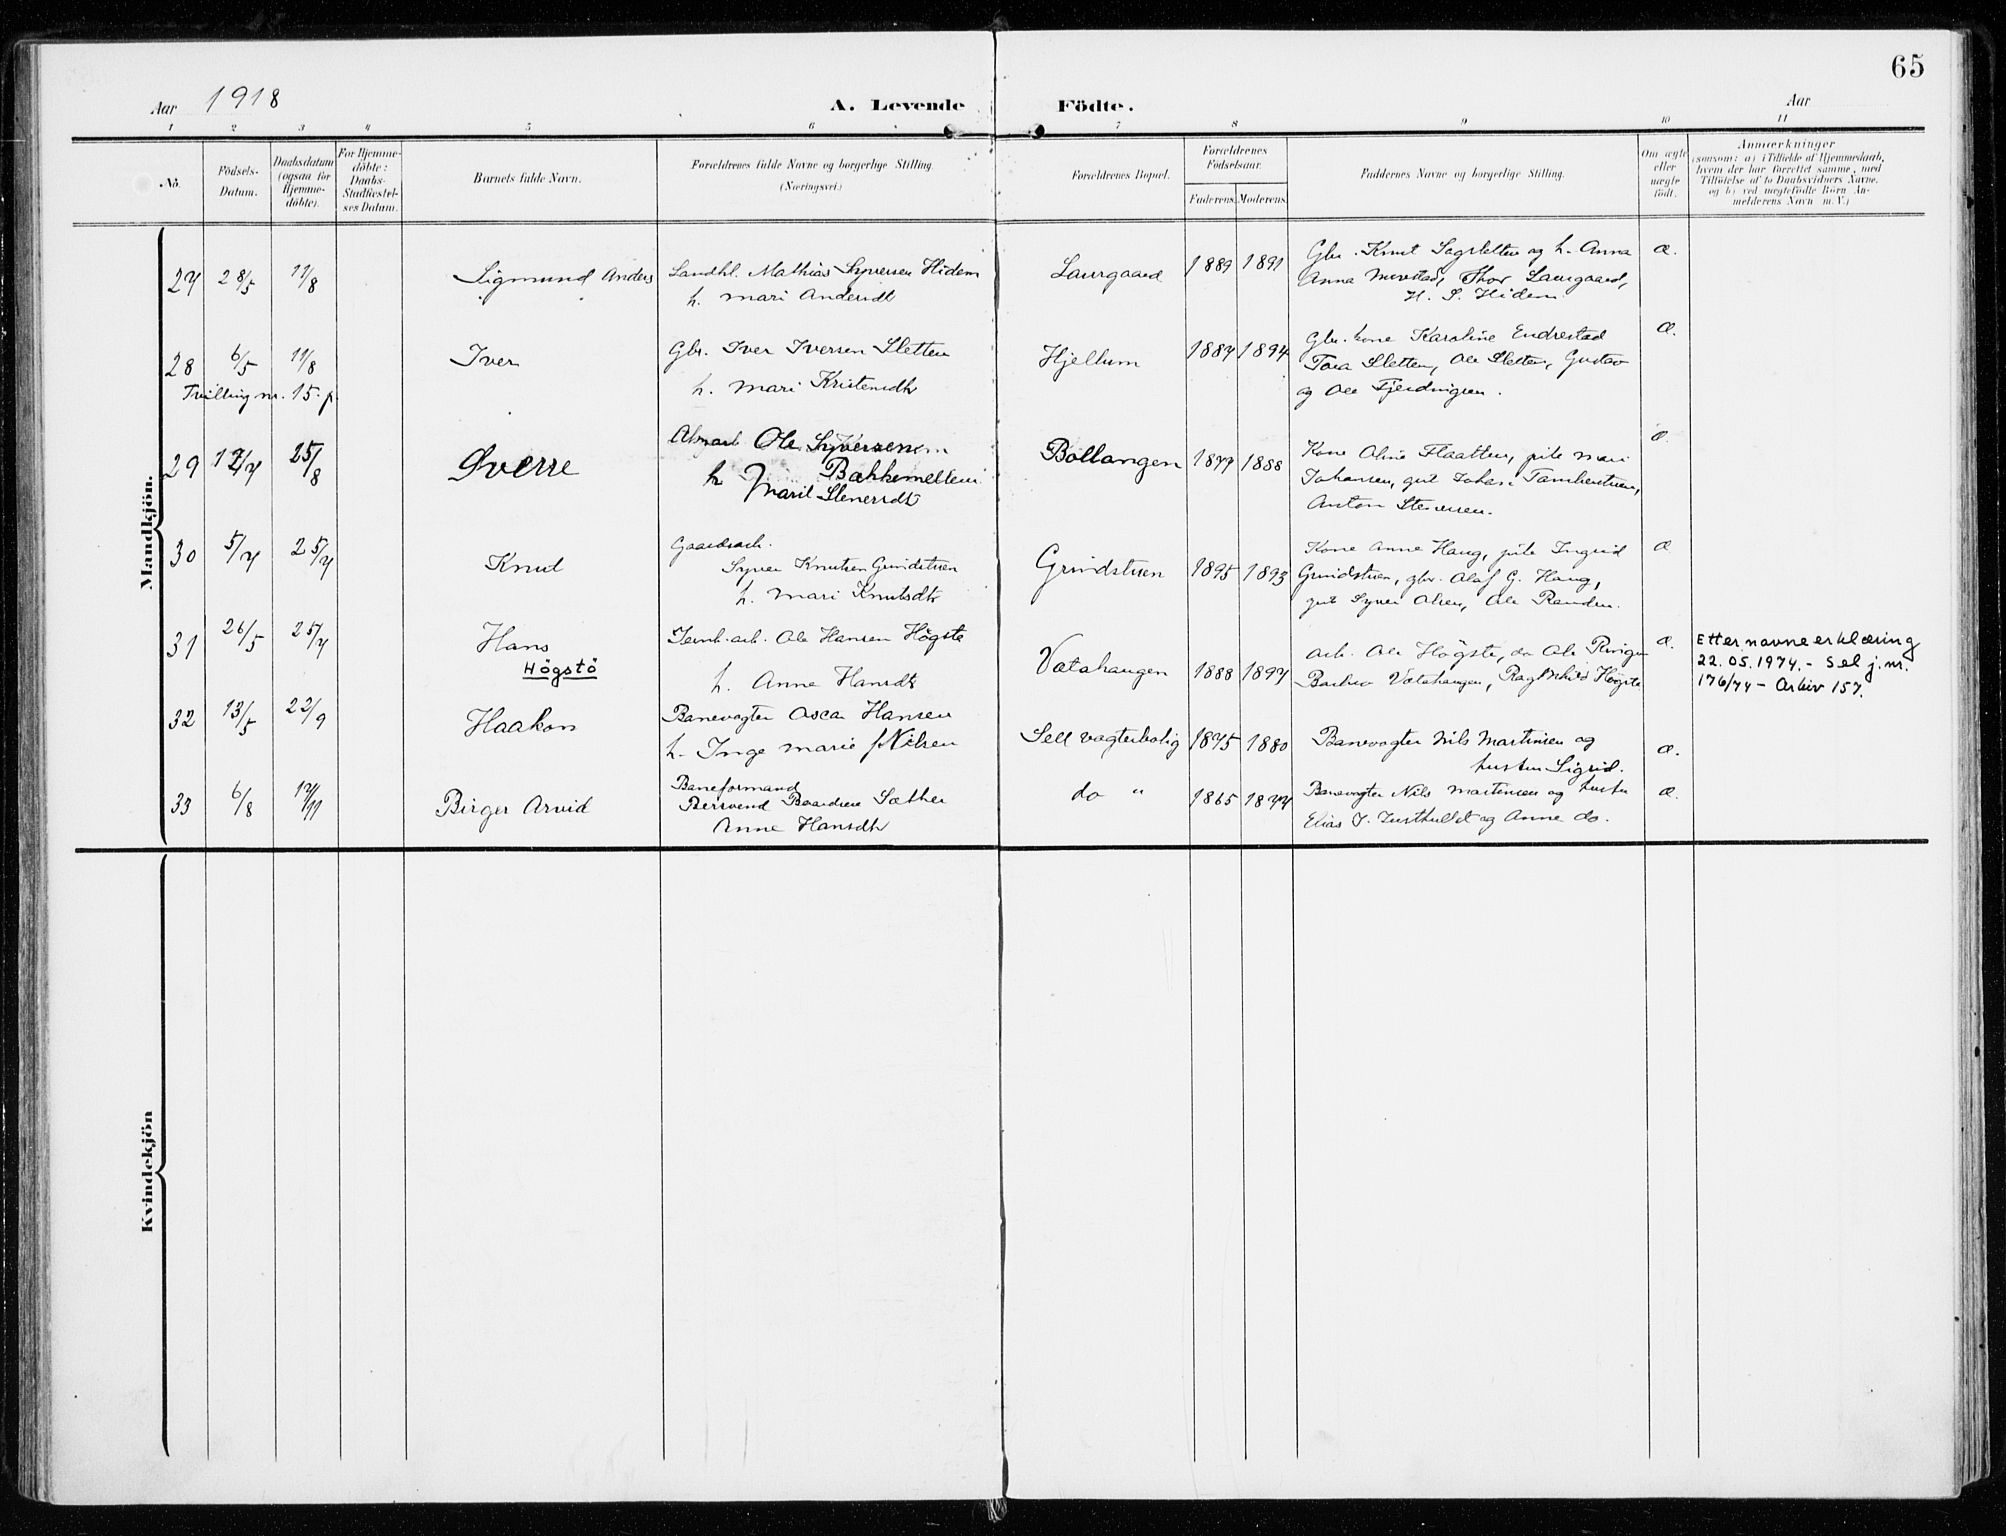 65
Aar 1918
A. Levende Födte.
Aar
1 2 3 4 5 6 7 8 9 10 11
No.
Födsels-Datum.
Daabsdatum (ogsaa for Hjemmedöbte).
For Hjemmedöbte: Daabs-Stadfæstelses Datum.
Barnets fulde Navn.
Forældrenes fulde Navne og borgerlige Stilling. (Næringsvei.)
Forældrenes Bopæl.
Forældrenes Födselsaar.
Faderens. Moderens.
Faddernes Navne og borgerlige Stilling.
Om ægte eller uægte födt.
Anmærkninger
(saasom: a) i Tilfælde af Hjemmedaab, hvem der har forrettet samme, med Tilföielse af to Daabsvidners Navne. og b) ved uægtefödte Börn Anmelderens Navn m. V.)
Mandkjön.
27 28/5 11/8 Sigmund Anders
Landhl. Mathias Syversen Hidem
h. Mari Andersdt
Laurgaard 1889 1891
Gbr. Knut Sagsletten og h. Anna
Anna Thor Laurgaard,
H. S. Hidem.
Æ.
28 6/5 11/8 Iver
Tvilling nr. 15 p.
Gbr. Iver Iversen Sletten
h. Mari Kristensdt
Hjellum 1887 1894
Gbr. kone Karoline Endrestad
Tora Sletten, Ole Sletten, Gustav
og Ole Fjerdingren.
Æ.
29 25/8 Sverre
Ole Syversen
Bakkemellem
h Marit Stenersdt
Bollangen 1877 1888
Kone Oline Flaatten, pike Mari
Johansen, gut Johan
Anton Stenersen.
Æ.
30 5/7 25/7 Knut
Gaardsarb.
Syver Knutsen Grindstuen
h. Mari Knutsdt
Grindstuen 1895 1893
Kone Anne Haug, pike Ingrid
Grindstuen, gbr. Olaf G. Haug,
gut Syver Olsen, Ole Randen.
Æ
31 26/5 25/7 Hans
Högstö
Jernb. arb. Ole Hansen Högste
h. Anne Hansdt
Vætahaugen 1888 1897
Arb. Ole Högste, do Ole Ringen
Barbro Vætahaugen, Ragnhild Högste
Æ.
Etter navneerklæring
22.05.1974.- Sel j.nr.
176/74 - Arkiv 157.
32 13/5 22/9 Haakon
Banevogter Oscar Hansen
h. Inge Marie f Nilsen
Sell vogterbolig 1875 1880
Banevogter Nils Martinsen og
hustru Sigrid.
Æ.
33 6/8 17/11 Birger Arvid
Baneformand
Bersvend Baardsen Sæther
Anne Hansdt
do " 1865 1877
Banevogter Nils Martinsen og hustru
Elias J. og Anne do.
Æ.
Kvindekjön